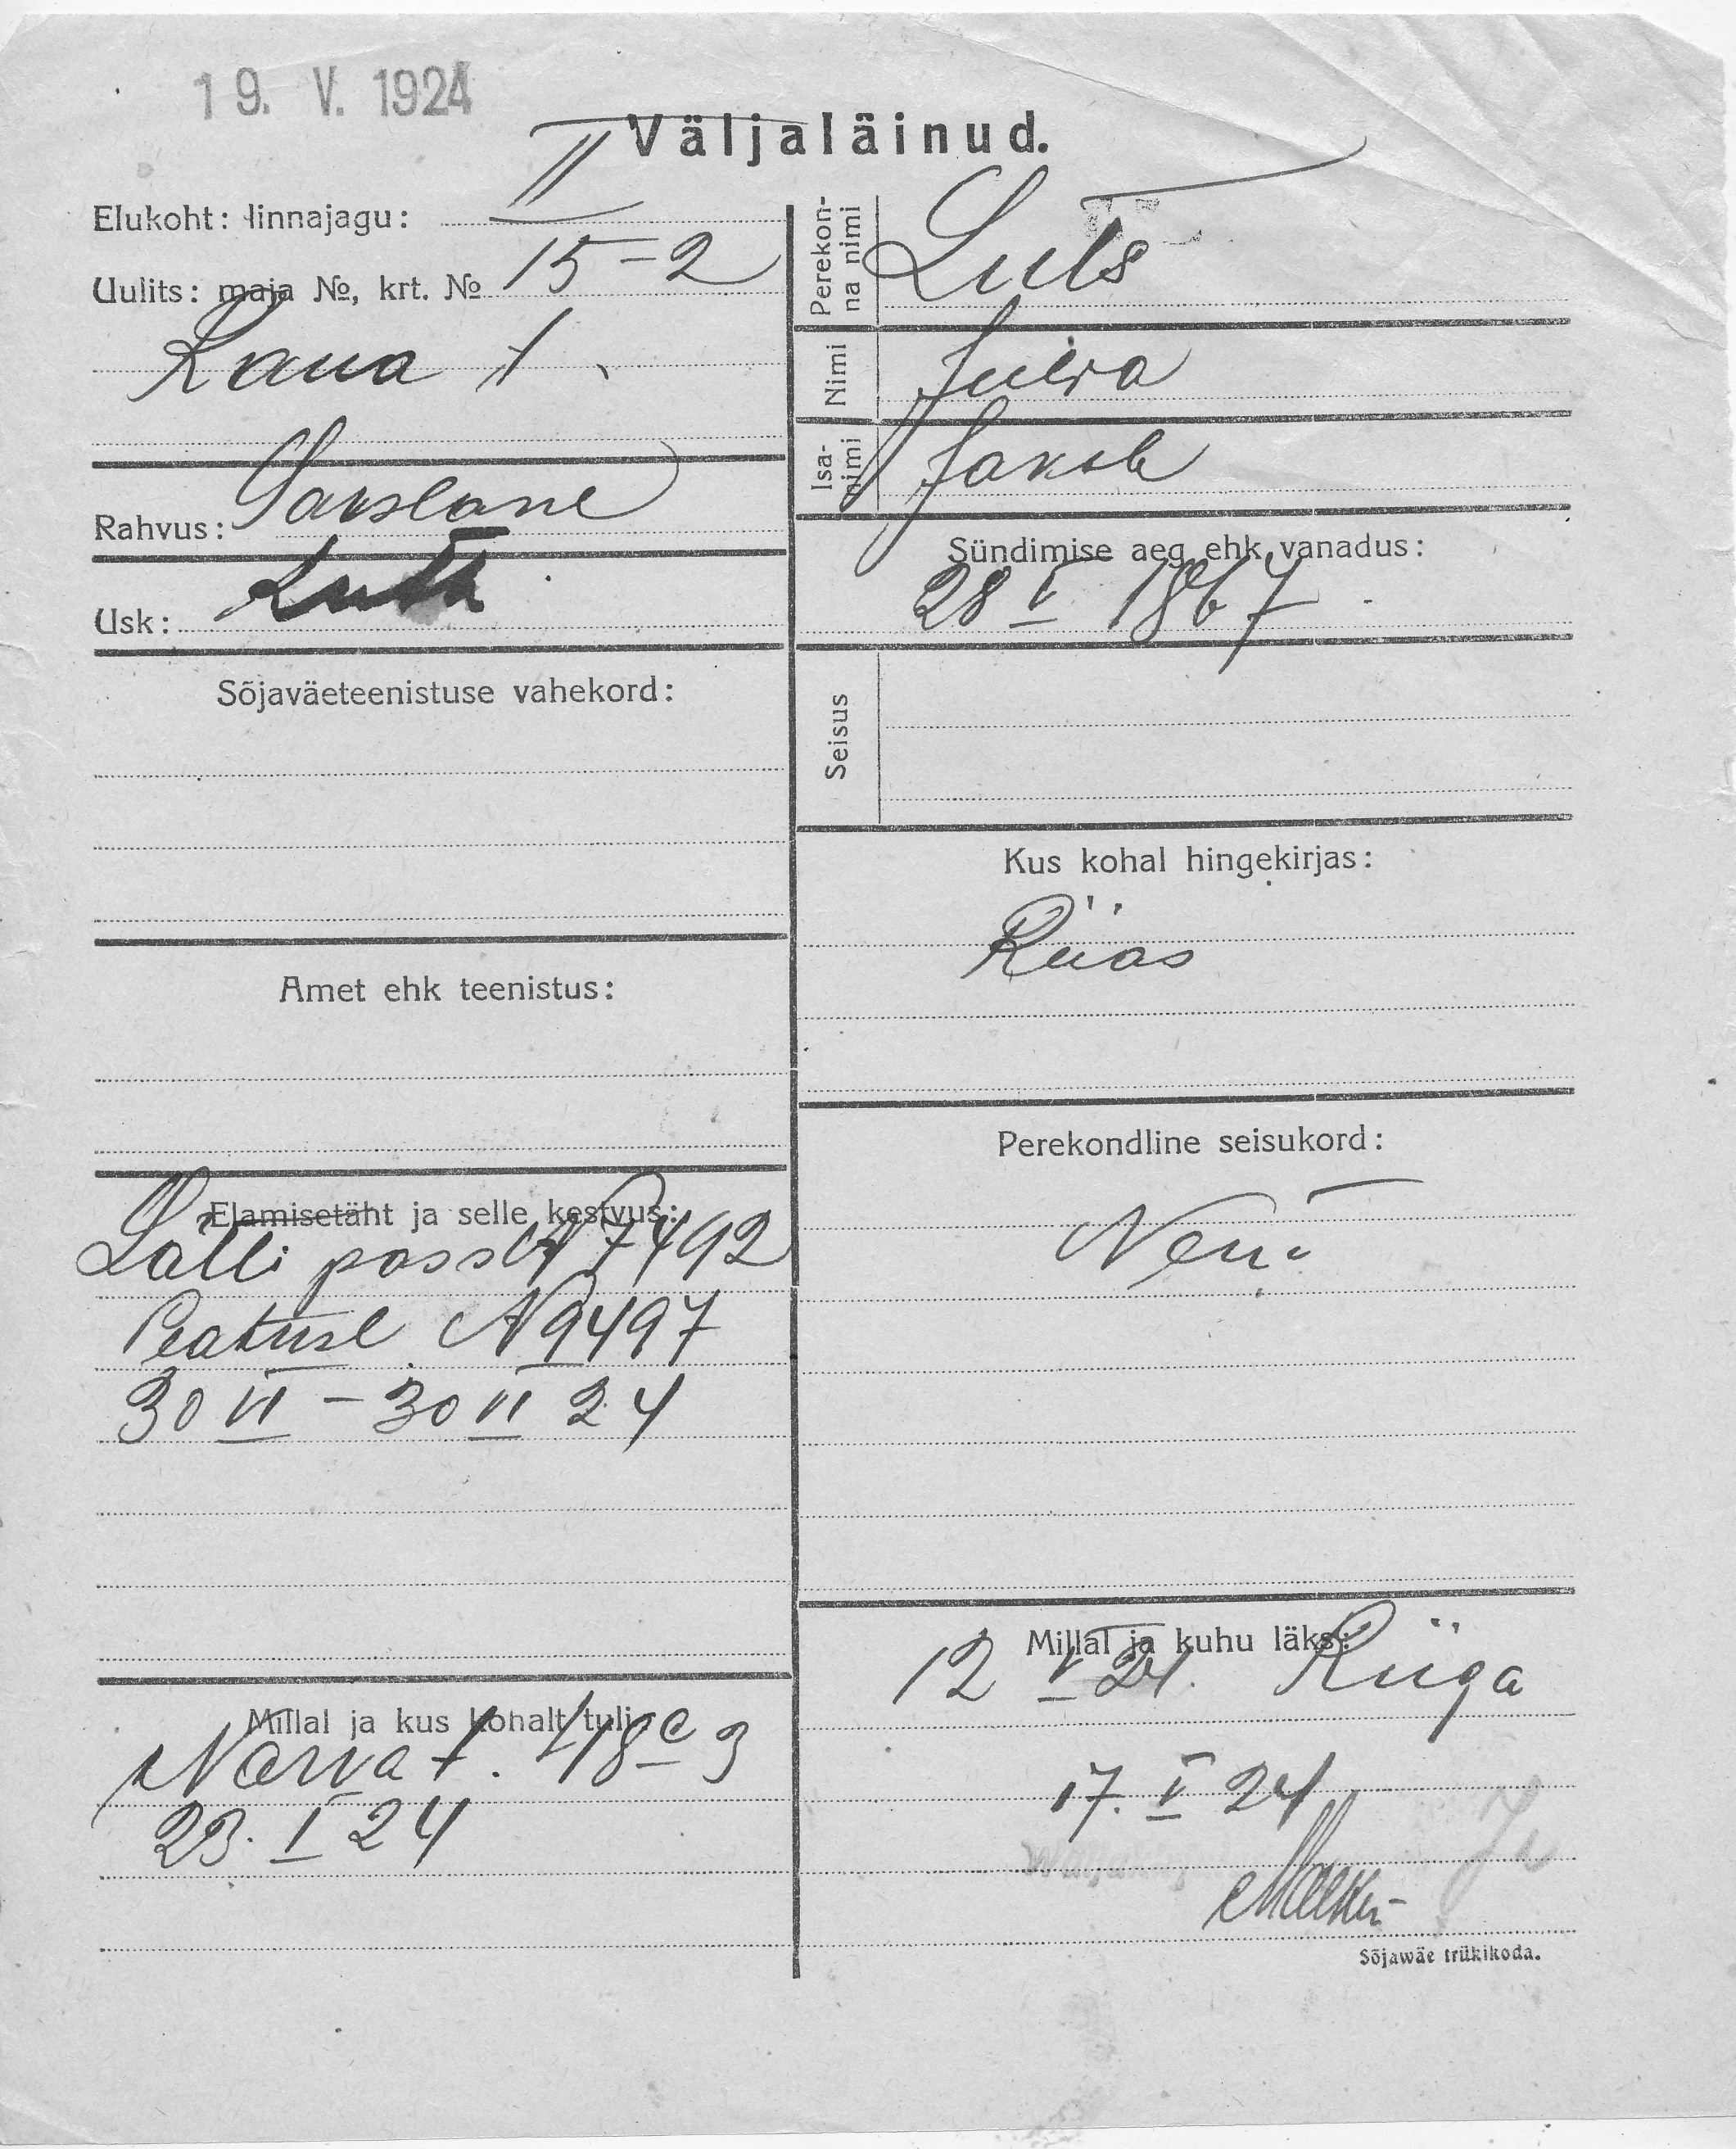 19. V. 1924
Väljaläinud.
Elukoht: linnajagu: II
Uulits: maja №, krt. № 15-2
Raua t
Rahvus: Sakslane
Usk: Luth
Sõjaväeteenistuse vahekord:
Amet ehk teenistus:
Elamisetäht ja selle kestvus:
Lätti pass № 7492
Peatuse № 9497
30 VI - 30 VI 24
Millal ja kus kohalt tuli:
Narva t. 118 c 3
23. I 24
Perekon-
na nimi
Luts
Nimi Julia
Isa-
nimi
Jakob
Sündimise aeg ehk vanadus:
28 V 1867
Seisus
Kus kohal hingekirjas:
Riias
Perekondline seisukord:
Millal ja kuhu läks:
12 V 24. Riiga
17. V 24
Sõjawäe trükikoda.